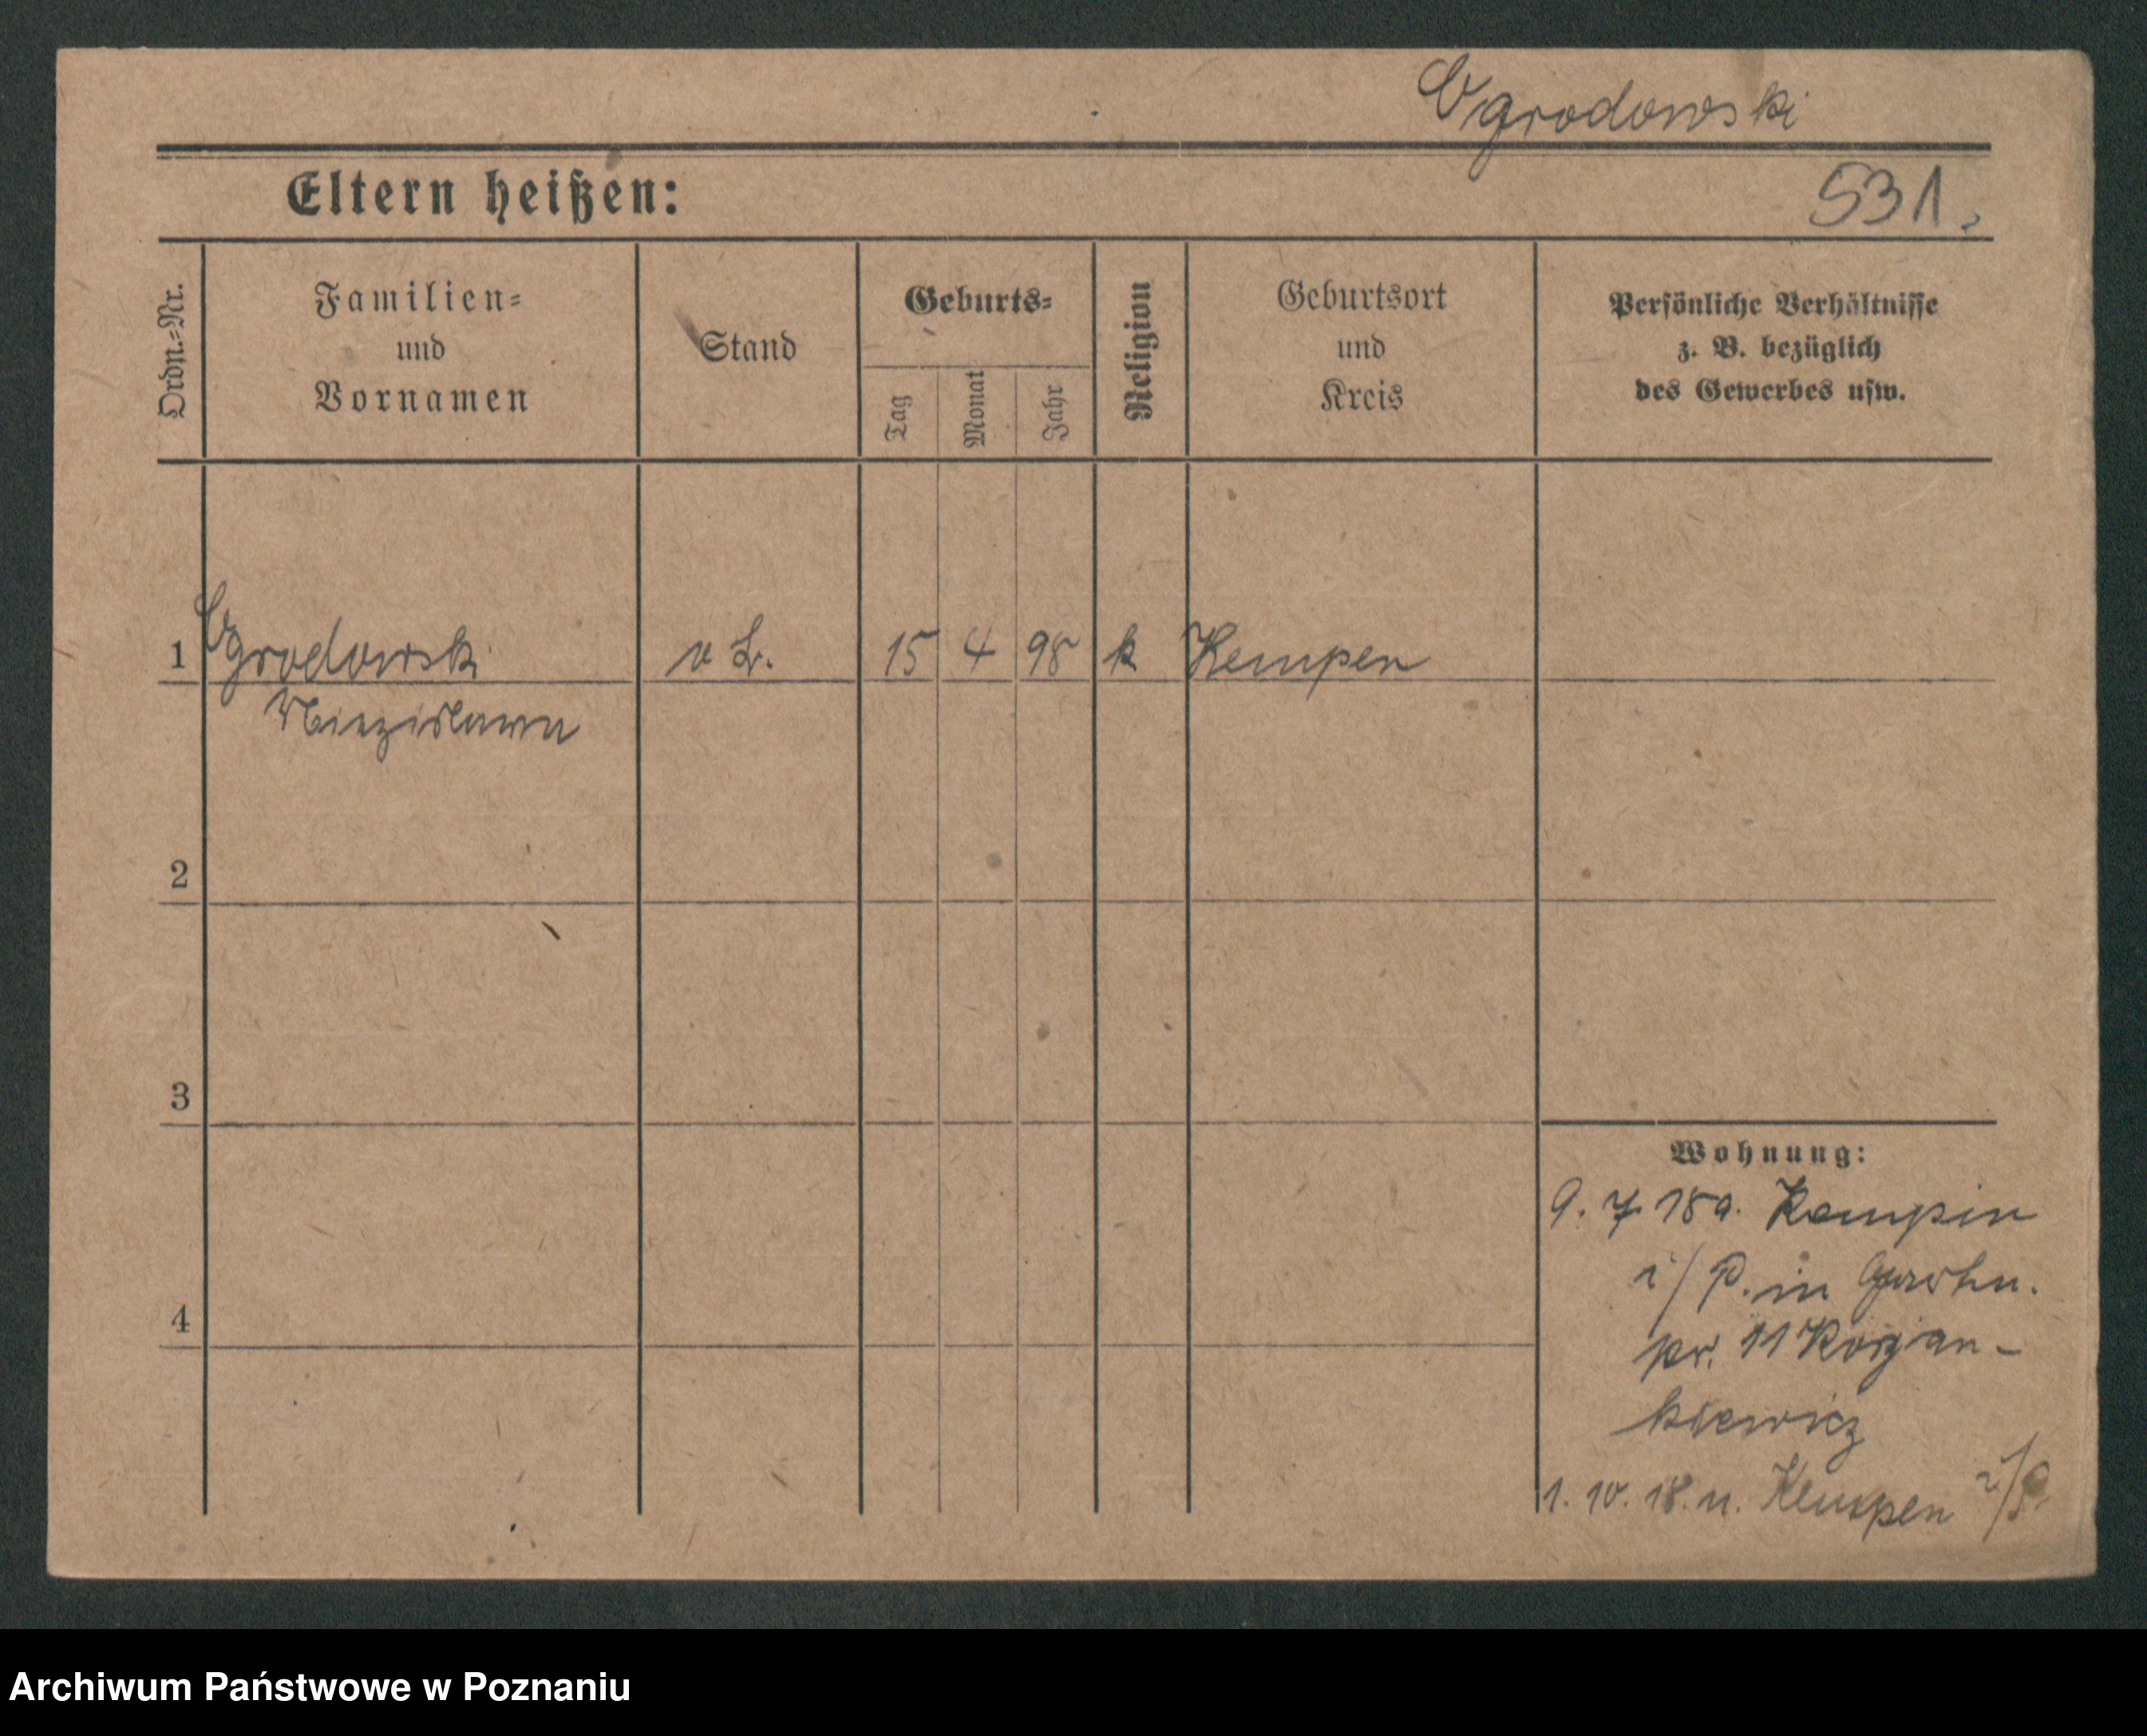 Ogrodowski
Eltern heißen:
531.
Ordn.=Nr.
Familien=
und
Vornamen
Stand
Geburts=
Tag
Monat
Jahr
Religion
Geburtsort
und
Kreis
Persönliche Verhältnisse
z. B. bezüglich
des Gewerbes usw.
1 Ogrodowski 15 4 98 k Kempen
2
3
4
Wohnung:
9. 7 18 a. Kempen
i/P. in
pr. 11
kiewicz
1. 10. 18. n. Kempen i/P.
Archiwum Państwowe w Poznaniu